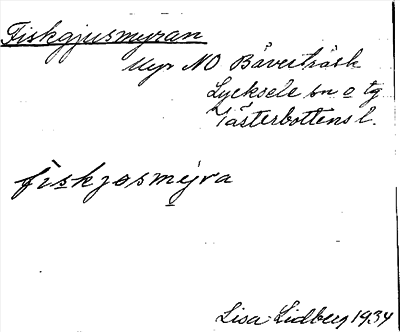 Fiskgjusmyran
Myr NO Bäverträsk
Lycksele sn o tg
Västerbottens l.
fiskjosmýra
Lisa Lidberg 1934